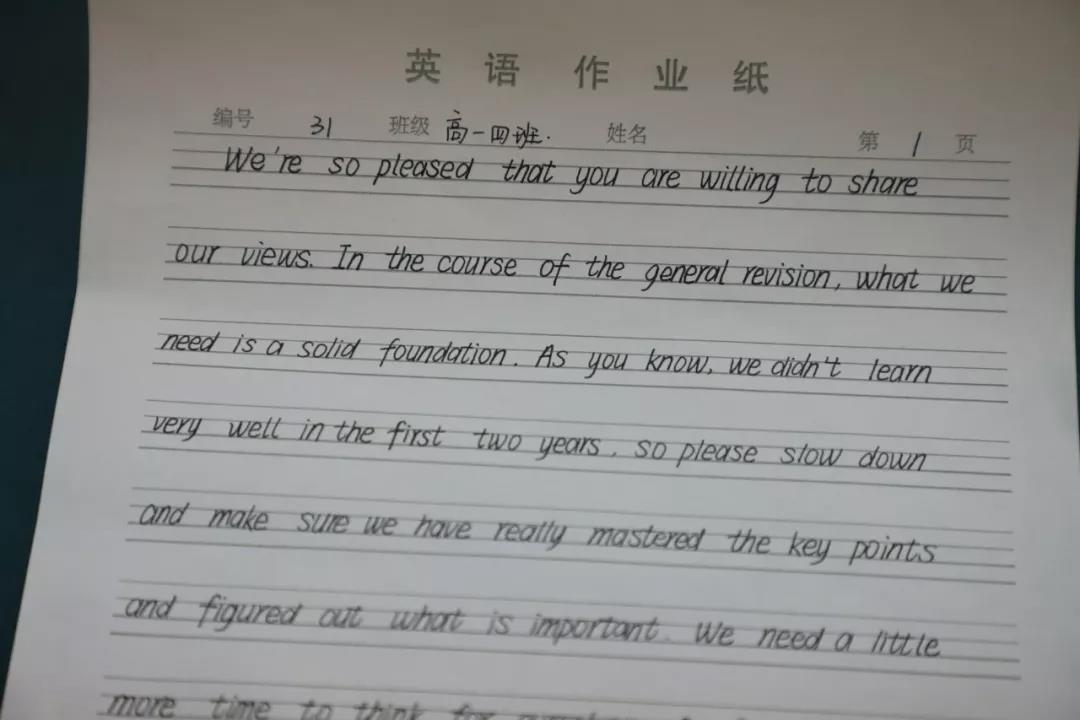 英语作业纸
编号 31 班级 高一四班. 姓名 第 1 页
We're so pleased that you are willing to share
our views. In the course of the general revision, what we
need is a solid foundation. As you know, we didn't learn
very well in the first two years. so please slow down
and make sure we have really mastered the key points
and figured out what is important. We need a little
more time to think for